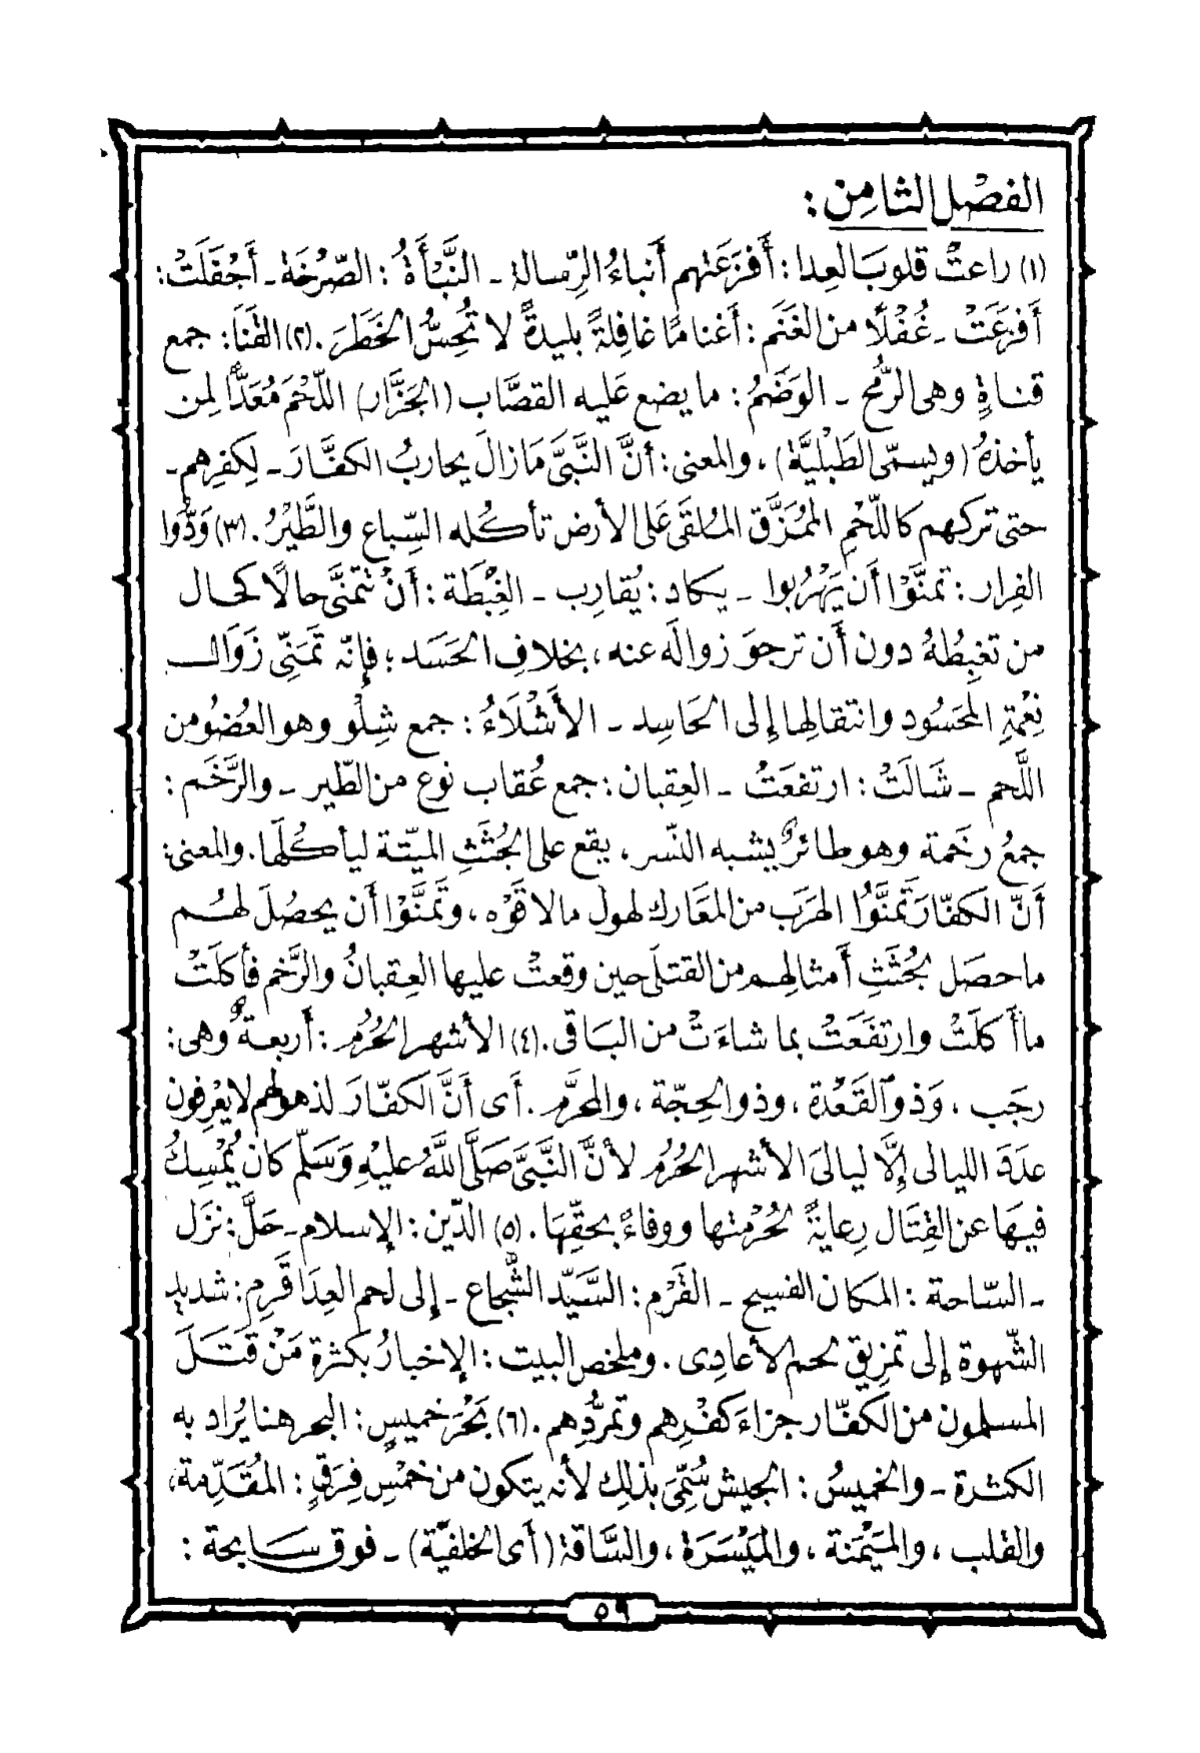 الفصْل الثامِن :
(١) راعتْ قلوبَ العِدا : أَفزَعَتهم أَنباءُ الرِّسالة - النَّبْأَةُ : الصَّرْخَة - أَجْفَلَتْ :
أَفزعَتْ - غُفْلًا من الغَنَم : أغنامًا غافِلةً بليدةً لا تُحِسُّ الخَطَرَ . (٢) القَنَا : جمع
قناةٍ وهى الرُّمح - الوَضَمُ : ما يضع عَليه القصَّاب (الجَزَّار) اللّحْمَ مُعَدًّا لِمن
يأخذهُ (ويسمّى الطَبْليَّة) ، والمعنى : أنَّ النَّبىَّ مَا زالَ يحاربُ الكفَّارَ - لِكفرِهم -
حتى تركهم كاللّحْمِ المُمَزَّق المُلقَى عَلى الأرض تأكُله السِّباع والطَّيْرُ . (٣) وَدُّوا
الفِرار : تمنَّوْا أَن يَهْرُبوا - يكاد : يُقارِب - الغِبْطَة : أَنْ تتمنَّى حالًا كحال
من تغبِطُهُ دون أَن ترجوَ زوالَه عنه ، بخلافِ الحَسَد ؛ فإنّه تَمَنِّى زَوَال
نِعْمَةِ المحَسُود وانتقالِها إلى الحَاسِد - الأَشْلَاءُ : جمع شِلْو وهو العُضُو من
اللَّحم - شَالَتْ : ارتفعَتْ - العِقبان : جمع عُقاب نوع من الطّير - والرَّخَم :
جمعُ رخَمة وهو طائرٌ يشبه النّسر ، يقع على الجُثَثِ الميّتة ليأكُلَها . والمعنى :
أنَّ الكفّارَ تمَنَّوُا الهرَب من المعَارك لهول ما لاقَوْه ، وتَمنَّوْا أَن يحصُلَ لهُم
ما حصَل بجُثَثِ أمثالِهم من القتلَى حين وقعتْ عليها العِقبانُ والرَّخم فأكلَتْ
ما أكلَتْ وارتفَعَتْ بما شاءَتْ من البَاقى . (٤) الأشهر الحُرُم : أربعةٌ وهى :
رجَب ، وَذو القَعْدة ، وذو الحِجّة ، والمحرَّم . أى أنَّ الكفّارَ لذهولهم لا يعْرِفون
عدَدَ الليالى إلَّا ليالىَ الأشهر الحُرُم لأنَّ النَّبىَّ صَلَّى اللَّهُ عليهِ وَسَلّم كان يُمْسِكُ
فيهَا عن القِتَال رِعايةً لحُرْمتها ووفاءً بحقّهَا . (٥) الدّين : الإسلام - حَلَّ : نزَل
- السّاحة : المكان الفسيح - القَرْم : السَّيِّد الشُّجاع - إلى لحم العِدَا قَرِم : شديد
الشّهوة إلى تمزيق لحم الأعادِى . وملخص البيت : الإخبارُ بكثرة مَنْ قَتَلَ
المسلمون من الكفّار جزاءَ كفْرِهم وتمرُّدِهم . (٦) بَحْرَ خميسٍ : البحر هنا يُراد به
الكثرة - والخميسُ : الجيش سُمِّىَ بذلِك لأنه يتكون من خمْسِ فِرَقٍ : المُقَدِّمة ،
والقلب ، والمَيْمَنة ، والمَيْسَرَة ، والسَّاقة (أى الخلفيّة) - فوق سَابحة :
٥٩